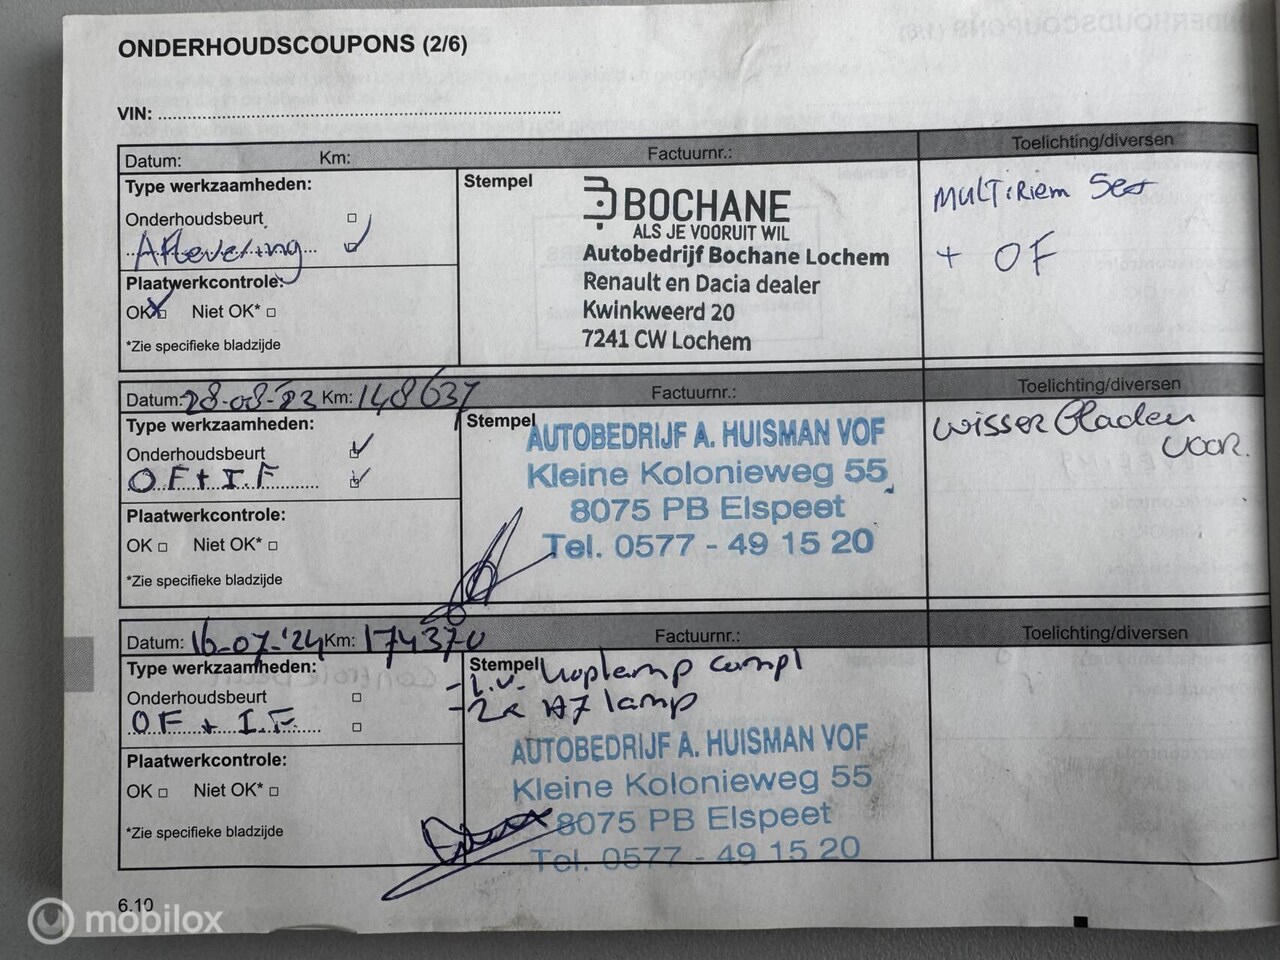 ONDERHOUDSCOUPONS (2/6)
VIN:
Datum: Km: Factuurnr.: Toelichting/diversen
Type werkzaamheden:
Onderhoudsbeurt
Aflevering
Plaatwerkcontrole:
OK Niet OK*
*Zie specifieke bladzijde
Stempel
BOCHANE
ALS JE VOORUIT WIL
Autobedrijf Bochane Lochem
Renault en Dacia dealer
Kwinkweerd 20
7241 CW Lochem
MULTiRiem Set
+ OF
Datum: 28-08-'23 Km: 148637 Factuurnr.: Toelichting/diversen
Type werkzaamheden:
Onderhoudsbeurt
OF + I.F
Plaatwerkcontrole:
OK Niet OK*
*Zie specifieke bladzijde
Stempel
AUTOBEDRIJF A. HUISMAN VOF
Kleine Kolonieweg 55
8075 PB Elspeet
Tel. 0577 - 49 15 20
wisserbladen
voor.
Datum: 16-07-'24 Km: 174370 Factuurnr.: Toelichting/diversen
Type werkzaamheden:
Onderhoudsbeurt
OF + I.F.
Plaatwerkcontrole:
OK Niet OK*
*Zie specifieke bladzijde
Stempel
- L.V. koplamp compl
- 2x H7 lamp
AUTOBEDRIJF A. HUISMAN VOF
Kleine Kolonieweg 55
8075 PB Elspeet
Tel. 0577 - 49 15 20
6.10
mobilox